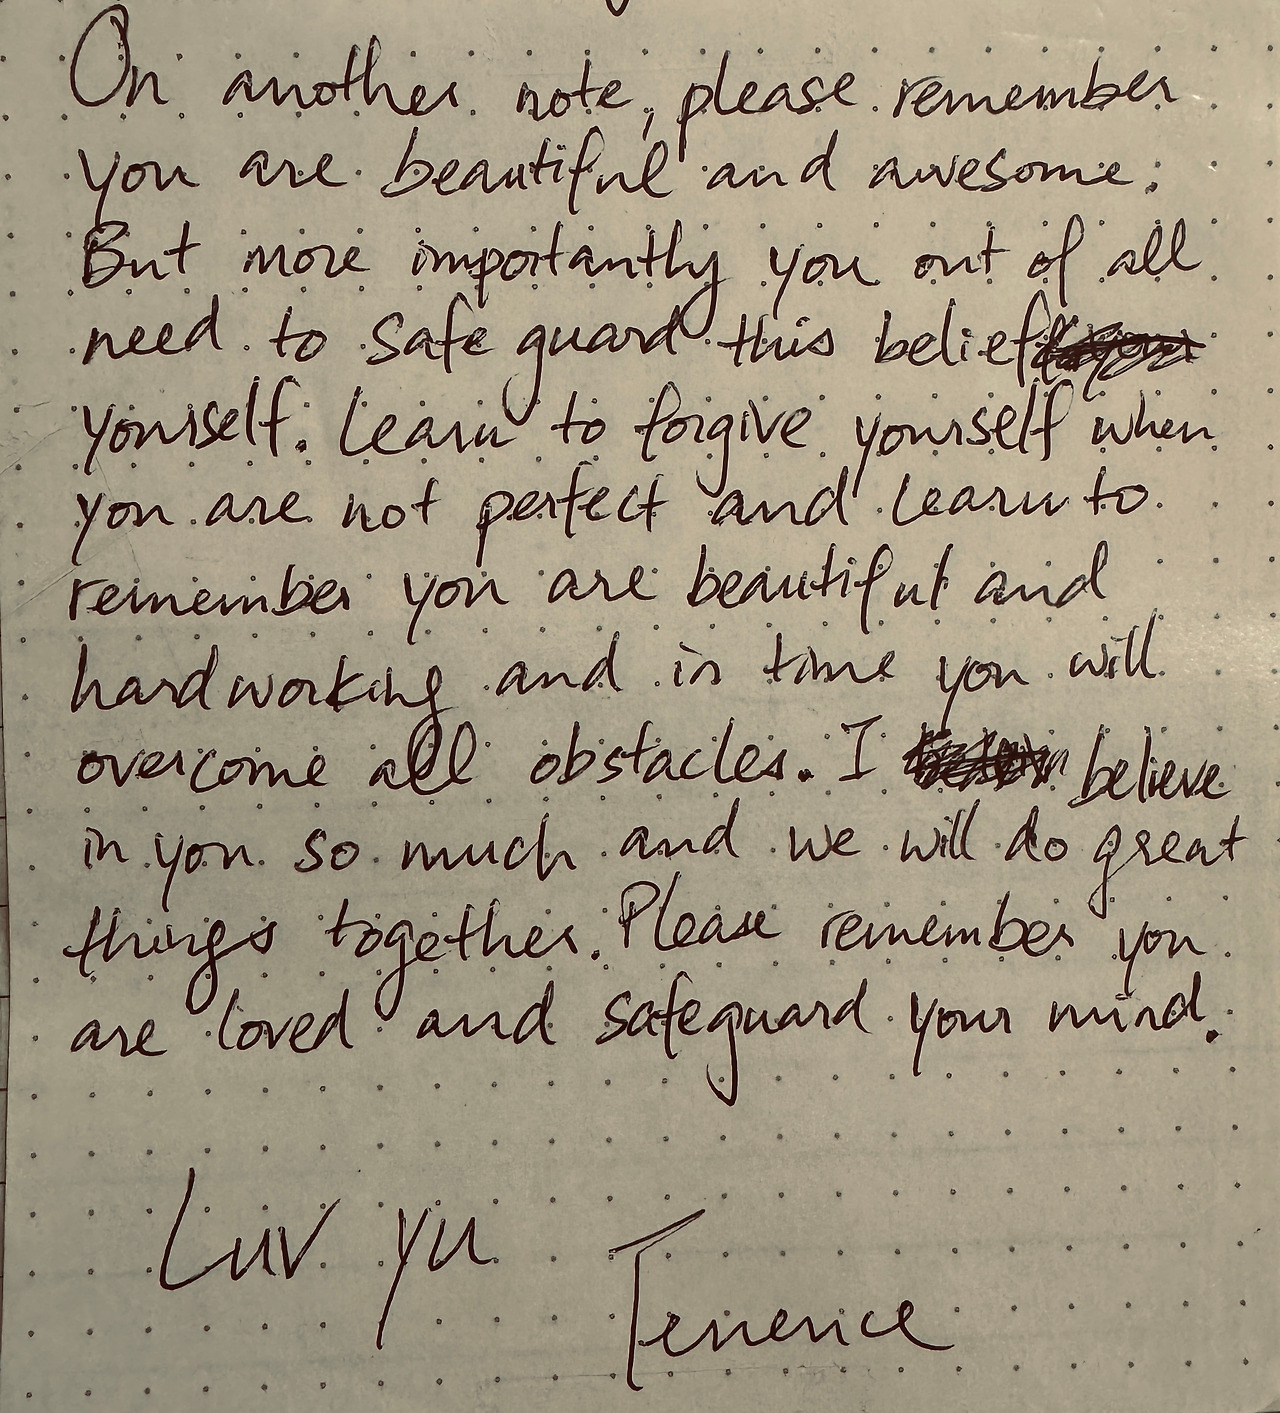 On another note, please remember
you are beautiful and awesome.
But more importantly you out of all
need to safe guard this belief
yourself. Learn to forgive yourself when
you are not perfect and learn to
remember you are beautiful and
hardworking and in time you will
overcome all obstacles. I believe
in you so much and we will do great
things together. Please remember you
are loved and safeguard your mind.
Luv yu
Terrence